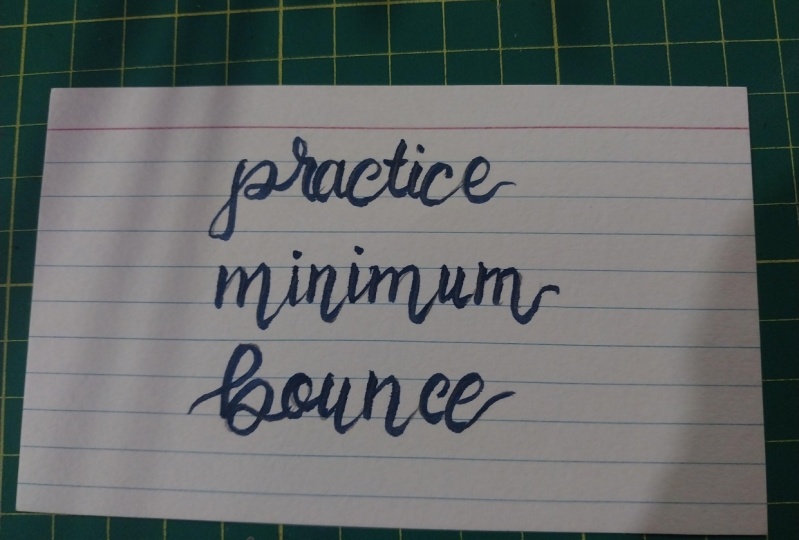 practice
minimum
bounce